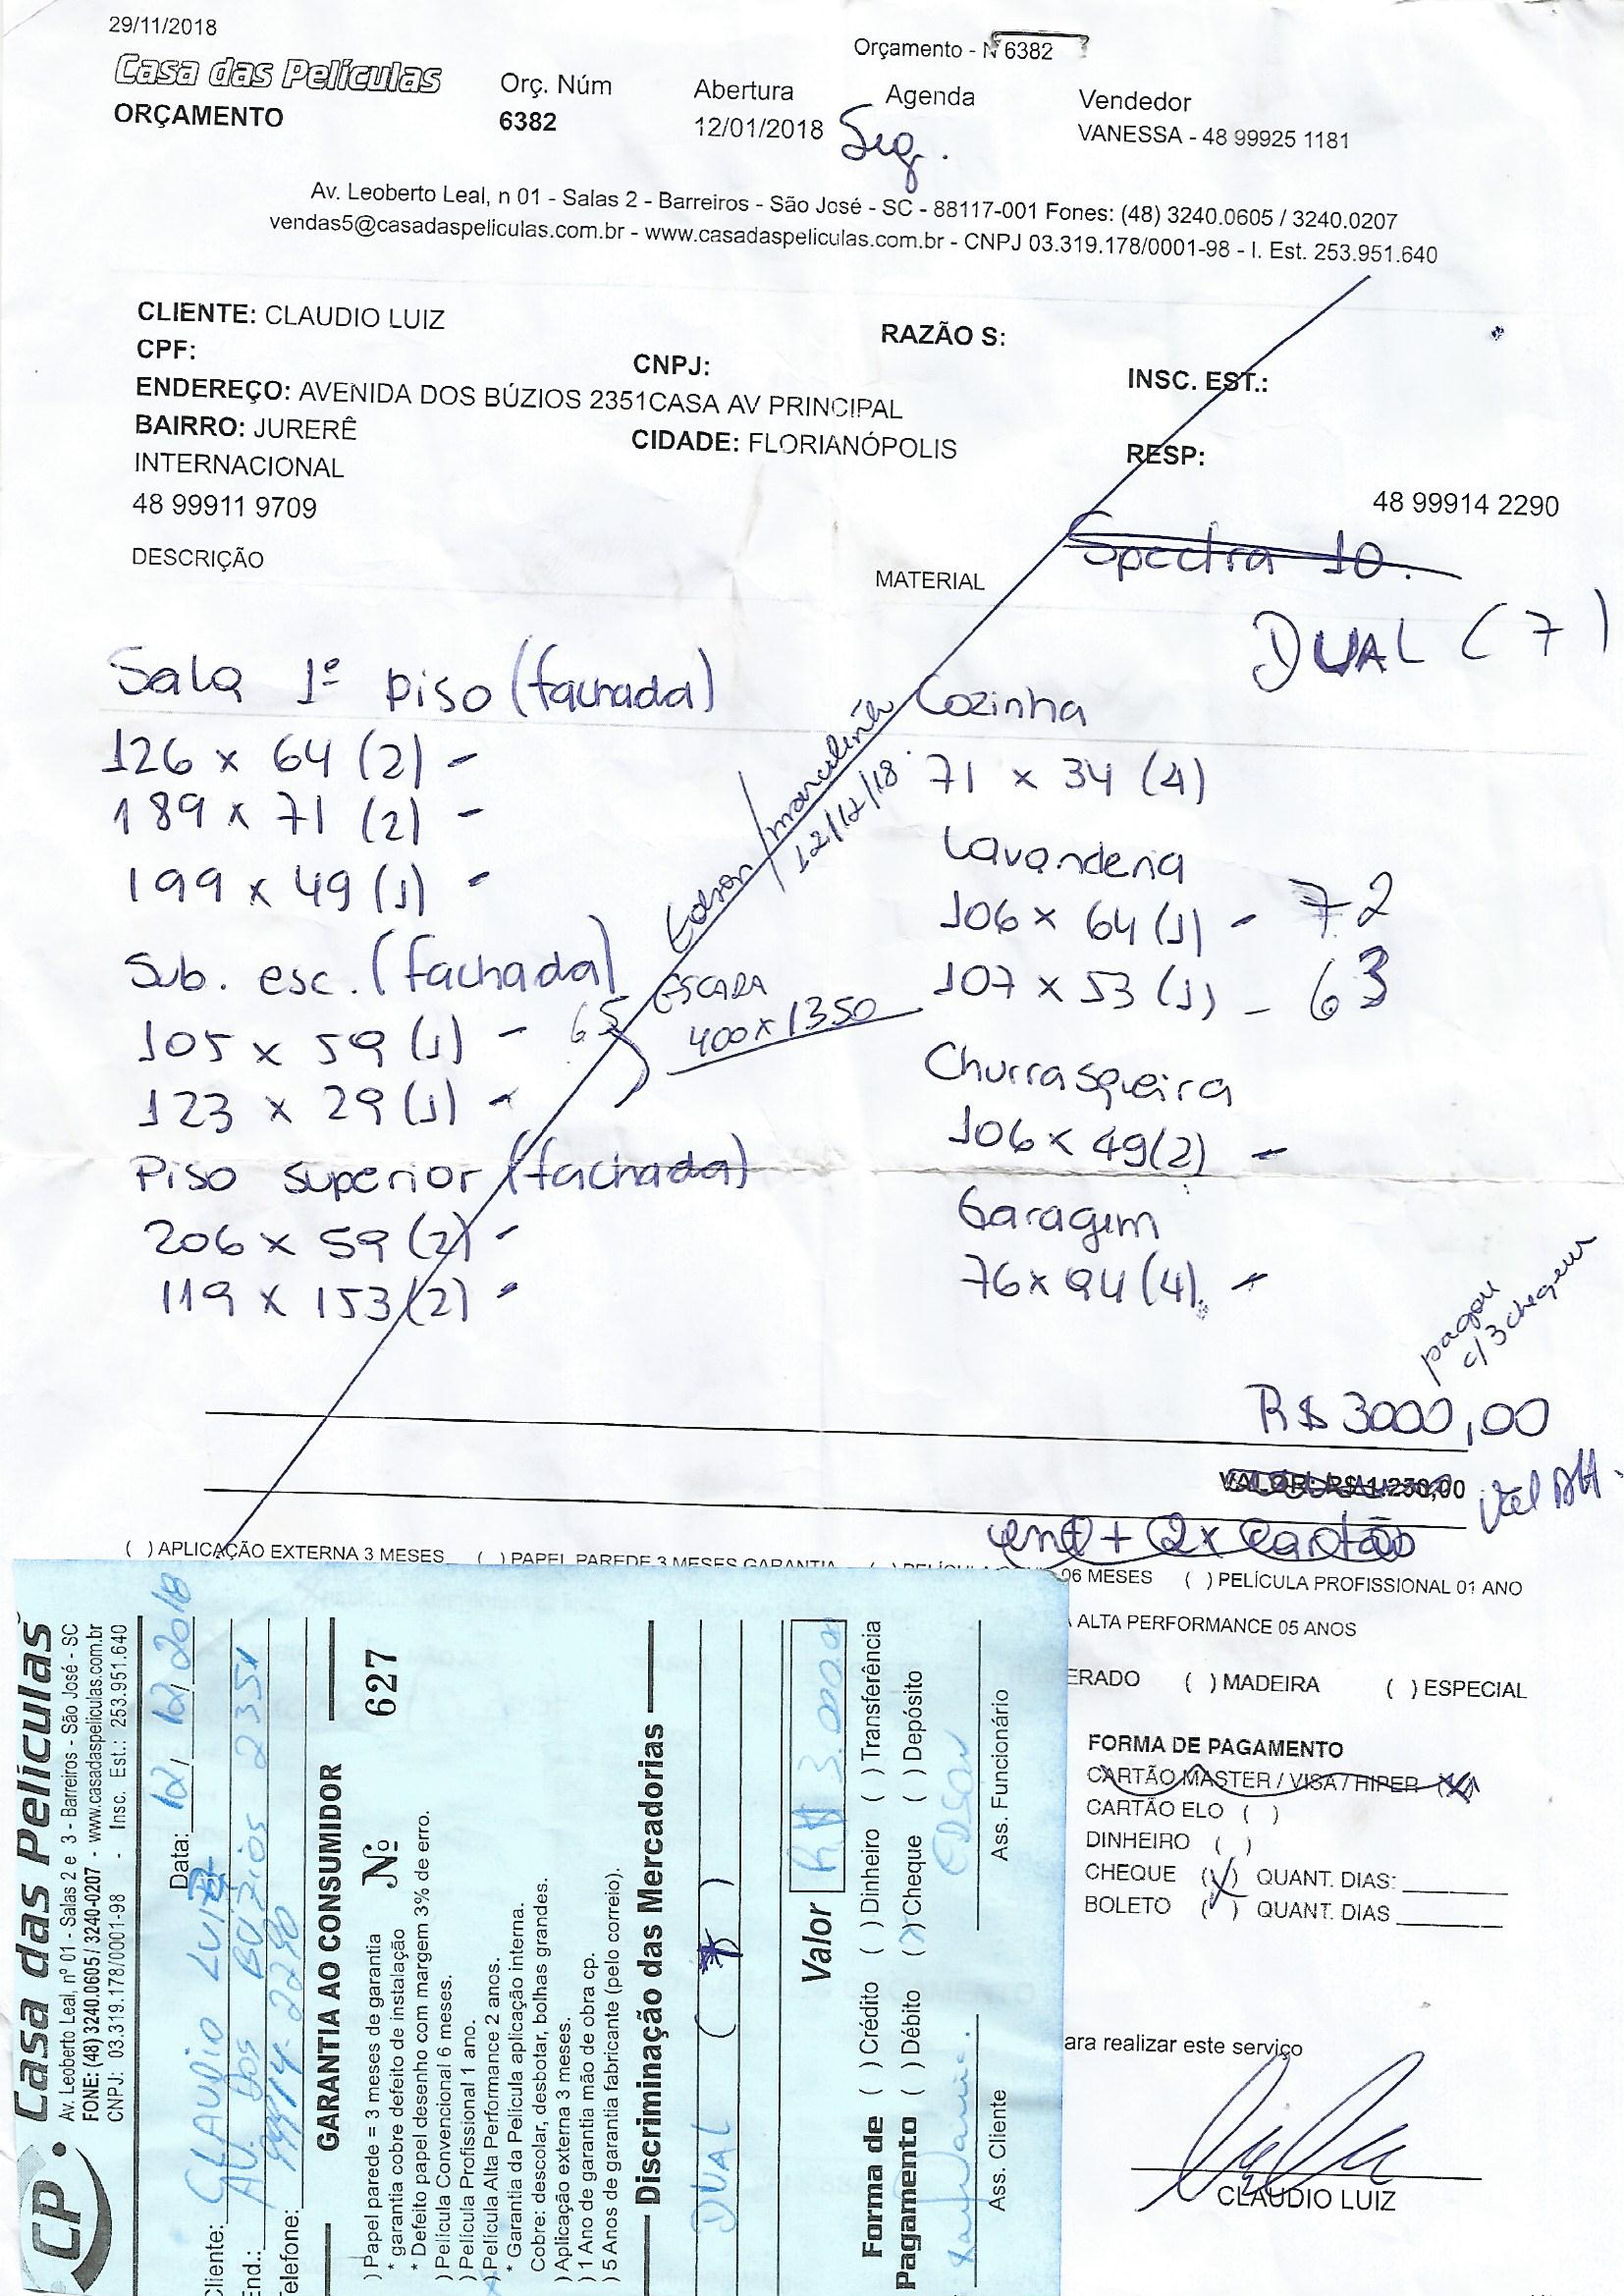 29/11/2018
Orçamento - N 6382
Casa das Películas
ORÇAMENTO
Orç. Núm
6382
Abertura
12/01/2018
Agenda
Seg.
Vendedor
VANESSA - 48 99925 1181
Av. Leoberto Leal, n 01 - Salas 2 - Barreiros - São José - SC - 88117-001 Fones: (48) 3240.0605 / 3240.0207
vendas5@casadaspeliculas.com.br - www.casadaspeliculas.com.br - CNPJ 03.319.178/0001-98 - I. Est. 253.951.640
CLIENTE: CLAUDIO LUIZ
RAZÃO S:
CPF:
CNPJ:
INSC. EST.:
ENDEREÇO: AVENIDA DOS BÚZIOS 2351CASA AV PRINCIPAL
BAIRRO: JURERÊ
INTERNACIONAL
CIDADE: FLORIANÓPOLIS
RESP:
48 99911 9709
48 99914 2290
DESCRIÇÃO
MATERIAL
Spectra 10.
DUAL (7)
Sala 1º piso (fachada)
126 x 64 (2) -
189 x 71 (2) -
199 x 49 (1) -
Sub. esc. (fachada)
105 x 59 (1) - 65
123 x 29 (1) -
ESCADA
400 x 1350
Piso superior (fachada)
206 x 59 (2) -
119 x 153 (2) -
Edson / marcelinho
12/12/18
Cozinha
71 x 34 (4)
Lavanderia
106 x 64 (1) - 72
107 x 53 (1) - 63
Churrasqueira
106 x 49 (2) -
Garagem
76 x 94 (4) -
pagou
c/ 3 cheques
R$ 3000,00
VALOR: R$ 1.250,00
ent + 2x Cartão
( ) APLICAÇÃO EXTERNA 3 MESES ( ) PAPEL PAREDE 3 MESES GARANTIA
06 MESES ( ) PELÍCULA PROFISSIONAL 01 ANO
ALTA PERFORMANCE 05 ANOS
ERADO ( ) MADEIRA ( ) ESPECIAL
FORMA DE PAGAMENTO
CARTÃO MASTER / VISA / HIPER (X)
CARTÃO ELO ( )
DINHEIRO ( )
CHEQUE (X) QUANT. DIAS:
BOLETO ( ) QUANT. DIAS
ara realizar este serviço
CLAUDIO LUIZ
CP. Casa das Películas
Av. Leoberto Leal, nº 01 - Salas 2 e 3 - Barreiros - São José - SC
FONE: (48) 3240.0605 / 3240-0207 - www.casadaspeliculas.com.br
CNPJ: 03.319.178/0001-98 - Insc. Est.: 253.951.640
Data: 12/12/2018
Cliente: CLAUDIO LUIZ
End.: AV. DOS BÚZIOS 2351
elefone: 99914-2290
GARANTIA AO CONSUMIDOR
Nº 627
) Papel parede = 3 meses de garantia
* garantia cobre defeito de instalação
* Defeito papel desenho com margem 3% de erro.
) Película Convencional 6 meses.
) Película Profissional 1 ano.
) Película Alta Performance 2 anos.
* Garantia da Película aplicação interna.
Cobre: descolar, desbotar, bolhas grandes.
) Aplicação externa 3 meses.
) 1 Ano de garantia mão de obra cp.
) 5 Anos de garantia fabricante (pelo correio).
Discriminação das Mercadorias
DUAL ( )
Valor R$ 3.000,00
Forma de Pagamento
( ) Crédito ( ) Dinheiro ( ) Transferência
( ) Débito (X) Cheque ( ) Depósito
EDSON
Ass. Cliente
Ass. Funcionário